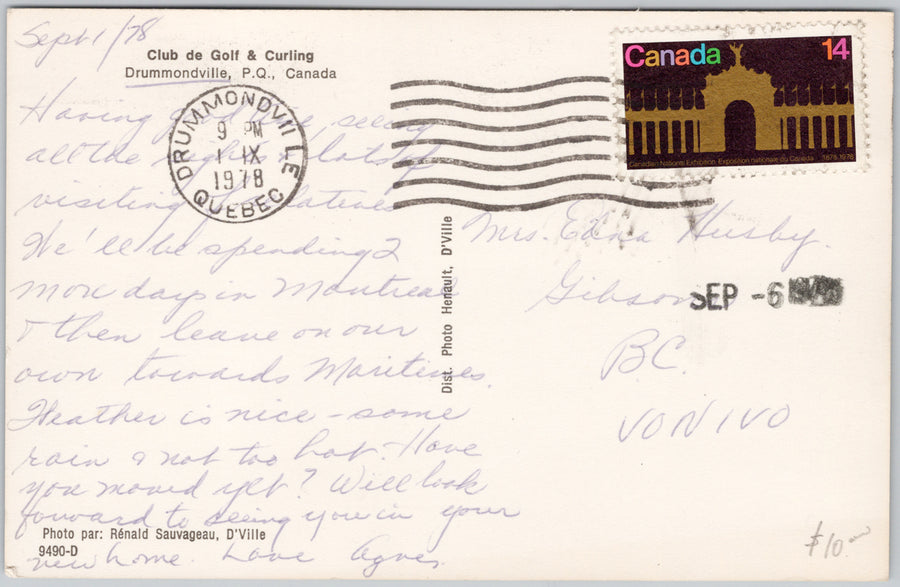 Sept 1/78
Club de Golf & Curling
Drummondville, P.Q., Canada
Having good time, seeing
all the sights & lots of
visiting relatives
We'll be spending 2
more days in Montreal
& then leave on our
own towards Maritimes.
Weather is nice - some
rain & not too hot. Have
you moved yet? Will look
forward to seeing you in your
new home. Love Agnes.
Photo par: Rénald Sauvageau, D'Ville
9490-D
Dist. Photo Henault, D'Ville
DRUMMONDVILLE
9 PM
1 IX
1978
QUEBEC
Canada 14
Canadian National Exhibition Exposition nationale du Canada 1878-1978
Mrs. Edna Husby.
Gibsons
SEP -6
B.C.
V0N 1V0
$10.00